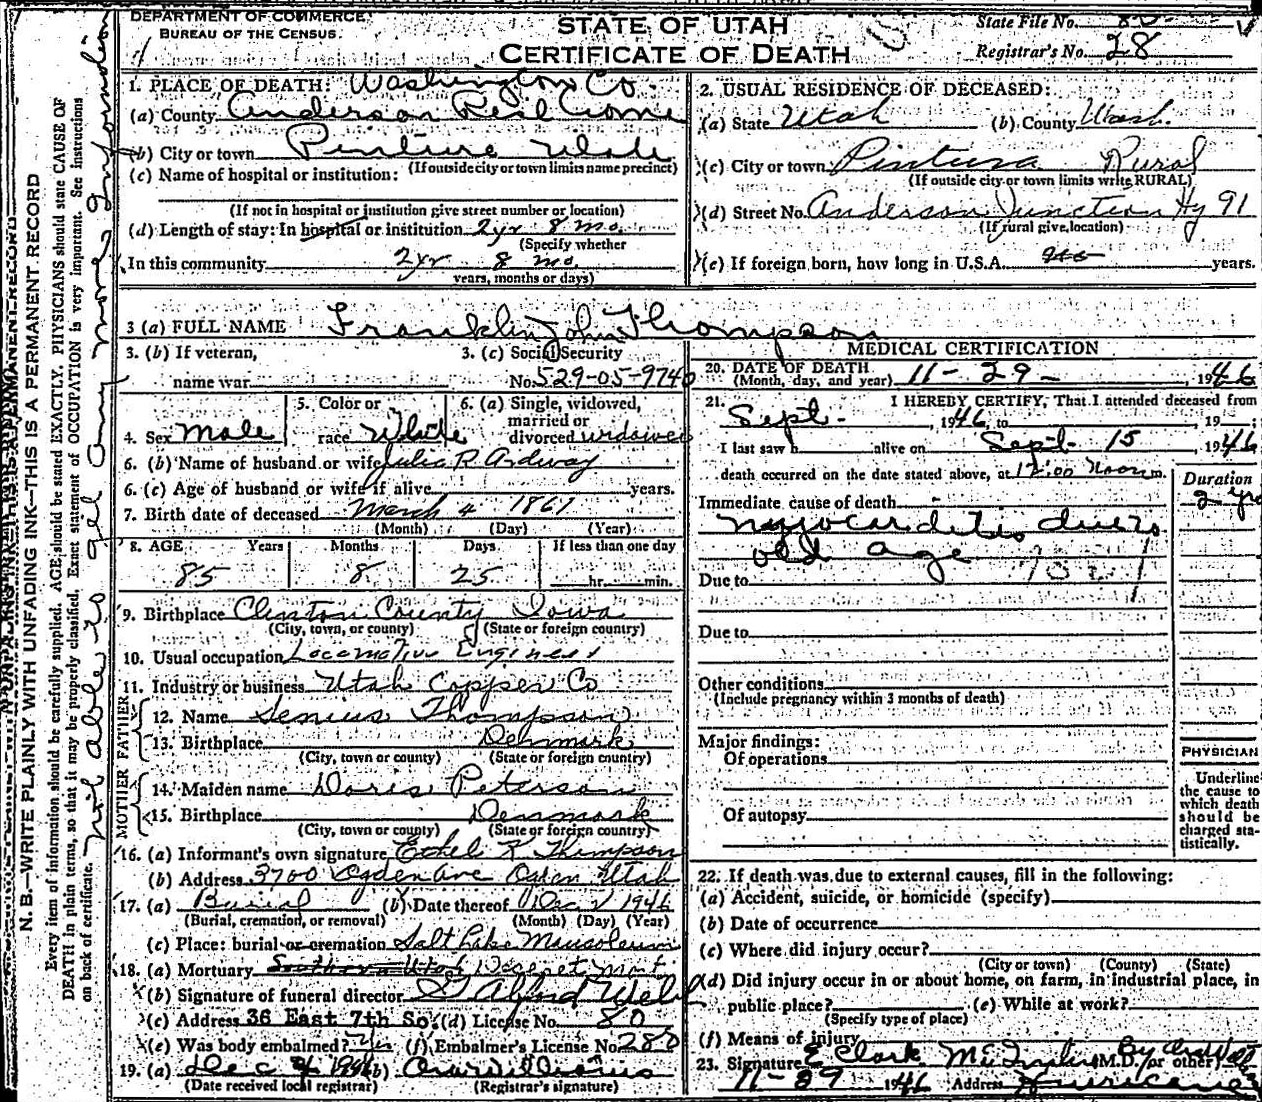 DEPARTMENT OF COMMERCE
BUREAU OF THE CENSUS
STATE OF UTAH
CERTIFICATE OF DEATH
State File No.
Registrar's No. 28
N. B.—WRITE PLAINLY WITH UNFADING INK—THIS IS A PERMANENT RECORD
Every item of information should be carefully supplied. AGE should be stated EXACTLY. PHYSICIANS should state CAUSE OF
DEATH in plain terms, so that it may be properly classified. Exact statement of OCCUPATION is very important. See instructions
on back of certificate.
not able to get any more information
1. PLACE OF DEATH: Washington Co.
(a) County Anderson Rest Home
(b) City or town Pintura Utah
(If outside city or town limits name precinct)
(c) Name of hospital or institution:
(If not in hospital or institution give street number or location)
(d) Length of stay: In hospital or institution 2 yr 8 mo.
(Specify whether
In this community 2 yr 8 mo.
years, months or days)
2. USUAL RESIDENCE OF DECEASED:
(a) State Utah (b) County Wash.
(c) City or town Pintura Rural
(If outside city or town limits write RURAL)
(d) Street No. Anderson Junction Hy 91
(If rural give location)
(e) If foreign born, how long in U.S.A. years.
3 (a) FULL NAME Franklin John Thompson
3. (b) If veteran,
name war
3. (c) Social Security
No. 529-05-9740
4. Sex Male
5. Color or
race White
6. (a) Single, widowed,
married or
divorced widowed
6. (b) Name of husband or wife Julia R. Ardway
6. (c) Age of husband or wife if alive years.
7. Birth date of deceased March 4 1861
(Month) (Day) (Year)
8. AGE Years Months Days If less than one day
85 8 25 hr. min.
9. Birthplace Clinton County Iowa
(City, town, or county) (State or foreign country)
10. Usual occupation Locomotive Engineer
11. Industry or business Utah Copper Co
FATHER
12. Name Senius Thompson
13. Birthplace Denmark
(City, town or county) (State or foreign country)
MOTHER
14. Maiden name Doris Peterson
15. Birthplace Denmark
(City, town or county) (State or foreign country)
16. (a) Informant's own signature Ethel K Thompson
(b) Address 3700 Ogden Ave Ogden Utah
17. (a) Burial (b) Date thereof Dec 2 1946
(Burial, cremation, or removal) (Month) (Day) (Year)
(c) Place: burial or cremation Salt Lake Mausoleum
18. (a) Mortuary Southern Utah Deseret Mort
(b) Signature of funeral director Alfred
(c) Address 36 East 7th So. (d) License No. 80
(e) Was body embalmed? Yes (f) Embalmer's License No. 280
19. (a) Dec 4 1946 (b)
(Date received local registrar) (Registrar's signature)
MEDICAL CERTIFICATION
20. DATE OF DEATH
(Month, day, and year) 11-29-, 1946
21. I HEREBY CERTIFY, That I attended deceased from
Sept-, 1946, to , 19 ;
I last saw h alive on Sept- 15, 1946
death occurred on the date stated above, at 12:00 Noon m.
Duration
Immediate cause of death 2 yrs
myocarditis due to
old age
Due to
Due to
Other conditions
(Include pregnancy within 3 months of death)
Major findings:
Of operations
Of autopsy
PHYSICIAN
Underline
the cause to
which death
should be
charged sta-
tistically.
22. If death was due to external causes, fill in the following:
(a) Accident, suicide, or homicide (specify)
(b) Date of occurrence
(c) Where did injury occur?
(City or town) (County) (State)
(d) Did injury occur in or about home, on farm, in industrial place, in
public place? (e) While at work?
(Specify type of place)
(f) Means of injury
23. Signature E Clark McIntire (M.D. or other)
11-29 1946 Address Hurricane